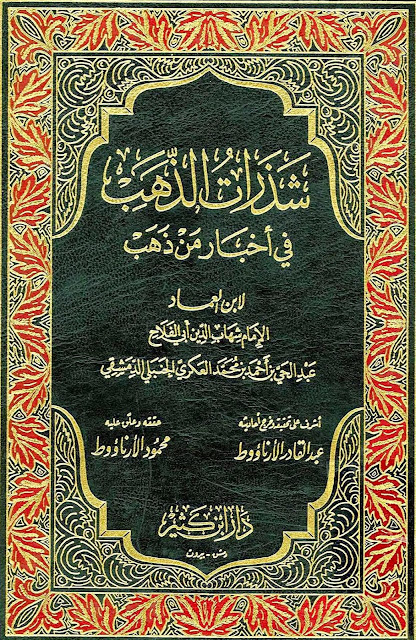 شَذَرَاتُ الذَّهَبِ
في أخبار مَنْ ذَهَبَ
لابن العماد
الإمام شهاب الدين أبي الفلاح
عبد الحي بن أحمد بن محمد العكري الحنبلي الدمشقي
أشرف على تحقيقه وخرج أحاديثه
عبد القادر الأرناؤوط
حققه وعلق عليه
محمود الأرناؤوط
دار ابن كثير
دمشق - بيروت